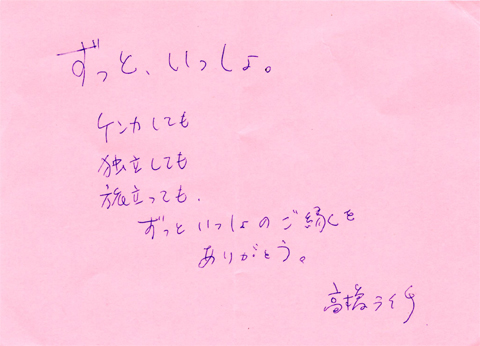 ずっと、いっしょ。
ケンカしても
独立しても
旅立っても、
ずっといっしょのご縁を
ありがとう。
高橋ライチ